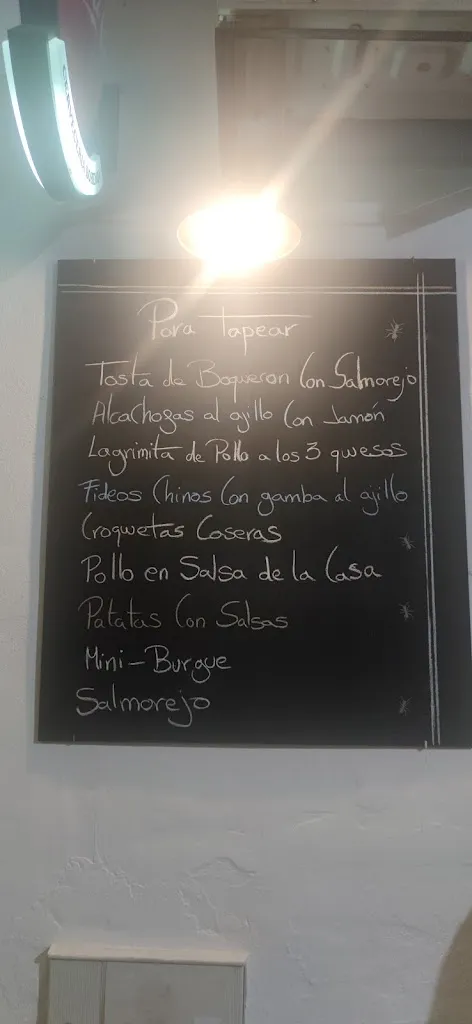 Para Tapear
Tosta de Boqueron Con Salmorejo
Alcachogas al ajillo Con Jamón
Lagrimita de Pollo a los 3 quesos
Fideos Chinos Con gamba al ajillo
Croquetas Caseras
Pollo en Salsa de la Casa
Patatas Con Salsas
Mini-Burgue
Salmorejo